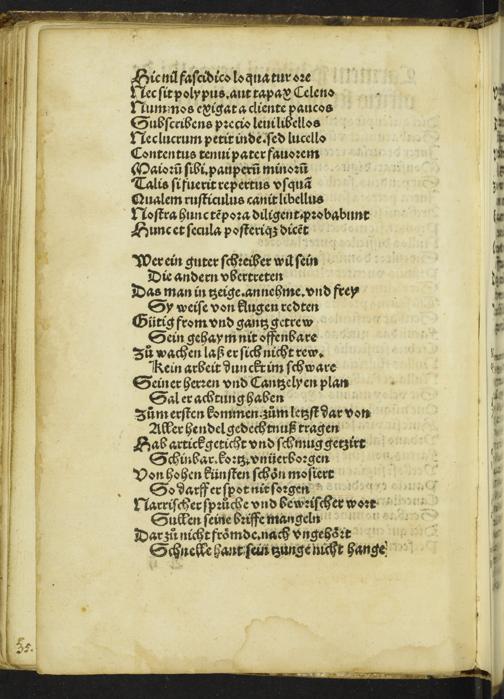 Hic nil fascidico loquatur ore
Nec sit polypus. aut tapax Celeno
Num nos exigat a cliente paucos
Subscribens precio leui libellos
Nec lucrum petit inde. sed lucello
Contentus tenui pater fauorem
Maiorū sibi, pauperū minorū
Talis si fuerit repertus vsquā
Qualem rusticulus canit libellus
Nostra hunc tēpora diligent. probabunt
Hunc et secula posteriqꝫ dicēt
Wer ein guter schreiber wil sein
Die andern vbertreten
Das man in tzeige. annehme. vnd frey
Sy weise von klugen redten
Gütig from vnd gantz getrew
Sein gehaym nit offenbare
Zů wachen laß er sich nicht rew.
Kein arbeit dunckt im schware
Seiner herren vnd Cantzelyen plan
Sal er achtung haben
Zům ersten kommen. zům letzst dar von
Aller hendel gedechtnuß tragen
Hab artick geticht vnd schmug getzirt
Schinbar. kortz. vnüerborgen
Von hohen künsten schön mosiert
So darff er spot nit sorgen
Narrischer sprüche vnd bewrischer wort
Sullen seine briffe mangeln
Dar zů nicht frömde. nach vngehört
Schnelle hant sein tzunge nicht hange
535.